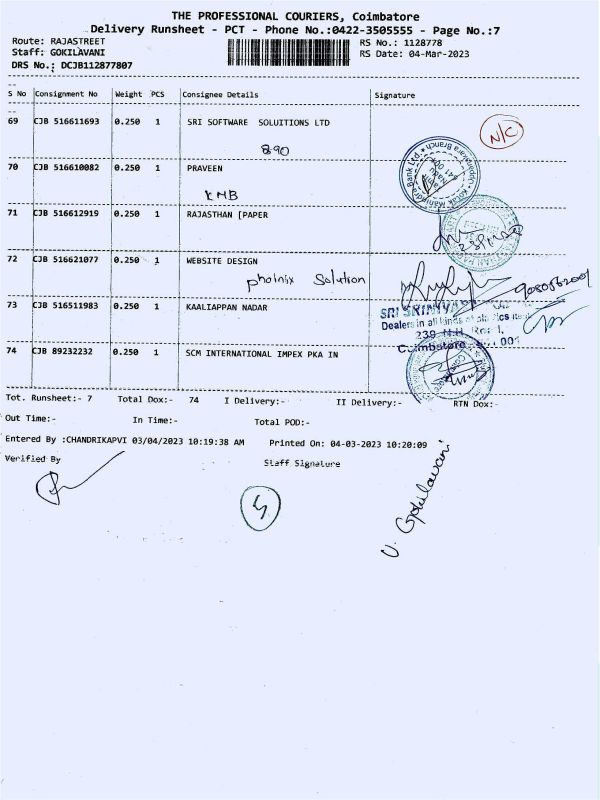 THE PROFESSIONAL COURIERS, Coimbatore
Delivery Runsheet - PCT - Phone No.:0422-3505555 - Page No.:7
Route: RAJASTREET
RS No.: 1128778
Staff: GOKILAVANI
RS Date: 04-Mar-2023
DRS No.: DCJB112877807
S No Consignment No Weight PCS Consignee Details Signature
69 CJB 516611693 0.250 1 SRI SOFTWARE SOLUITIONS LTD
N/C
890
70 CJB 516610082 0.250 1 PRAVEEN
KMB
71 CJB 516612919 0.250 1 RAJASTHAN [PAPER
72 CJB 516621077 0.250 1 WEBSITE DESIGN
phoinix Solution
73 CJB 516511983 0.250 1 KAALIAPPAN NADAR
Dealers in all kinds of
Coimbatore
74 CJB 89232232 0.250 1 SCM INTERNATIONAL IMPEX PKA IN
Tot. Runsheet:- 7 Total Dox:- 74 I Delivery:- II Delivery:- RTN Dox:-
Out Time:- In Time:- Total POD:-
Entered By :CHANDRIKAPVI 03/04/2023 10:19:38 AM Printed On: 04-03-2023 10:20:09
Verified By Staff Signature
5
U. Gokilavani